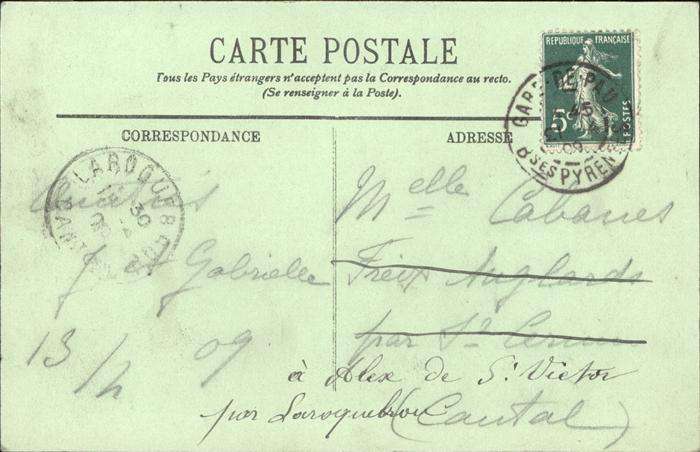 CARTE POSTALE
Tous les Pays étrangers n'acceptent pas la Correspondance au recto.
(Se renseigner à la Poste).
REPUBLIQUE FRANÇAISE
5c
POSTES
GARE DE PAU
45
09
Bses PYREN
CORRESPONDANCE
ADRESSE
LAROQUEBROU
30
Amitiés
J et Gabrielle
13/4 09
Melle Cabanes
Freix Anglards
par St Cernin
à Alex de St Victor
par Laroquebrou (Cantal)